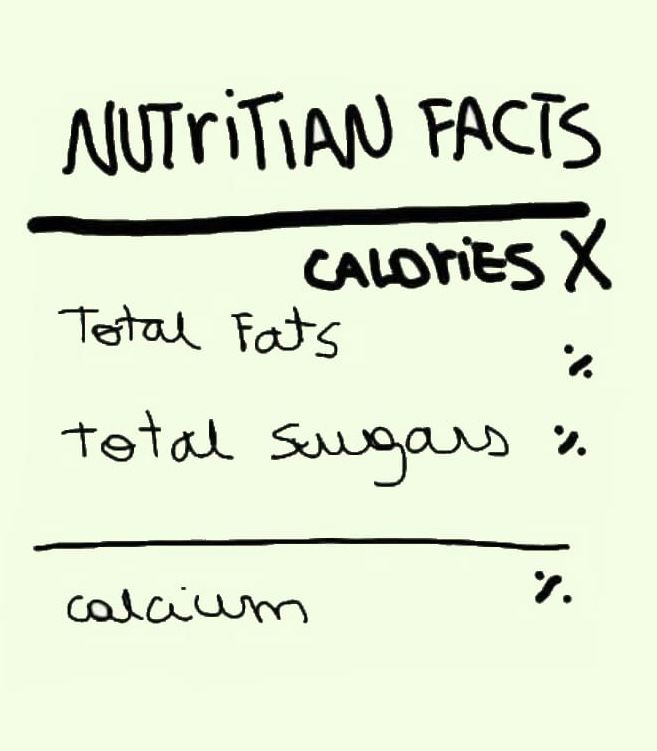 NUTriTIAN FACTS
CALOriES X
Total Fats %
Total Sugars %
calcium %